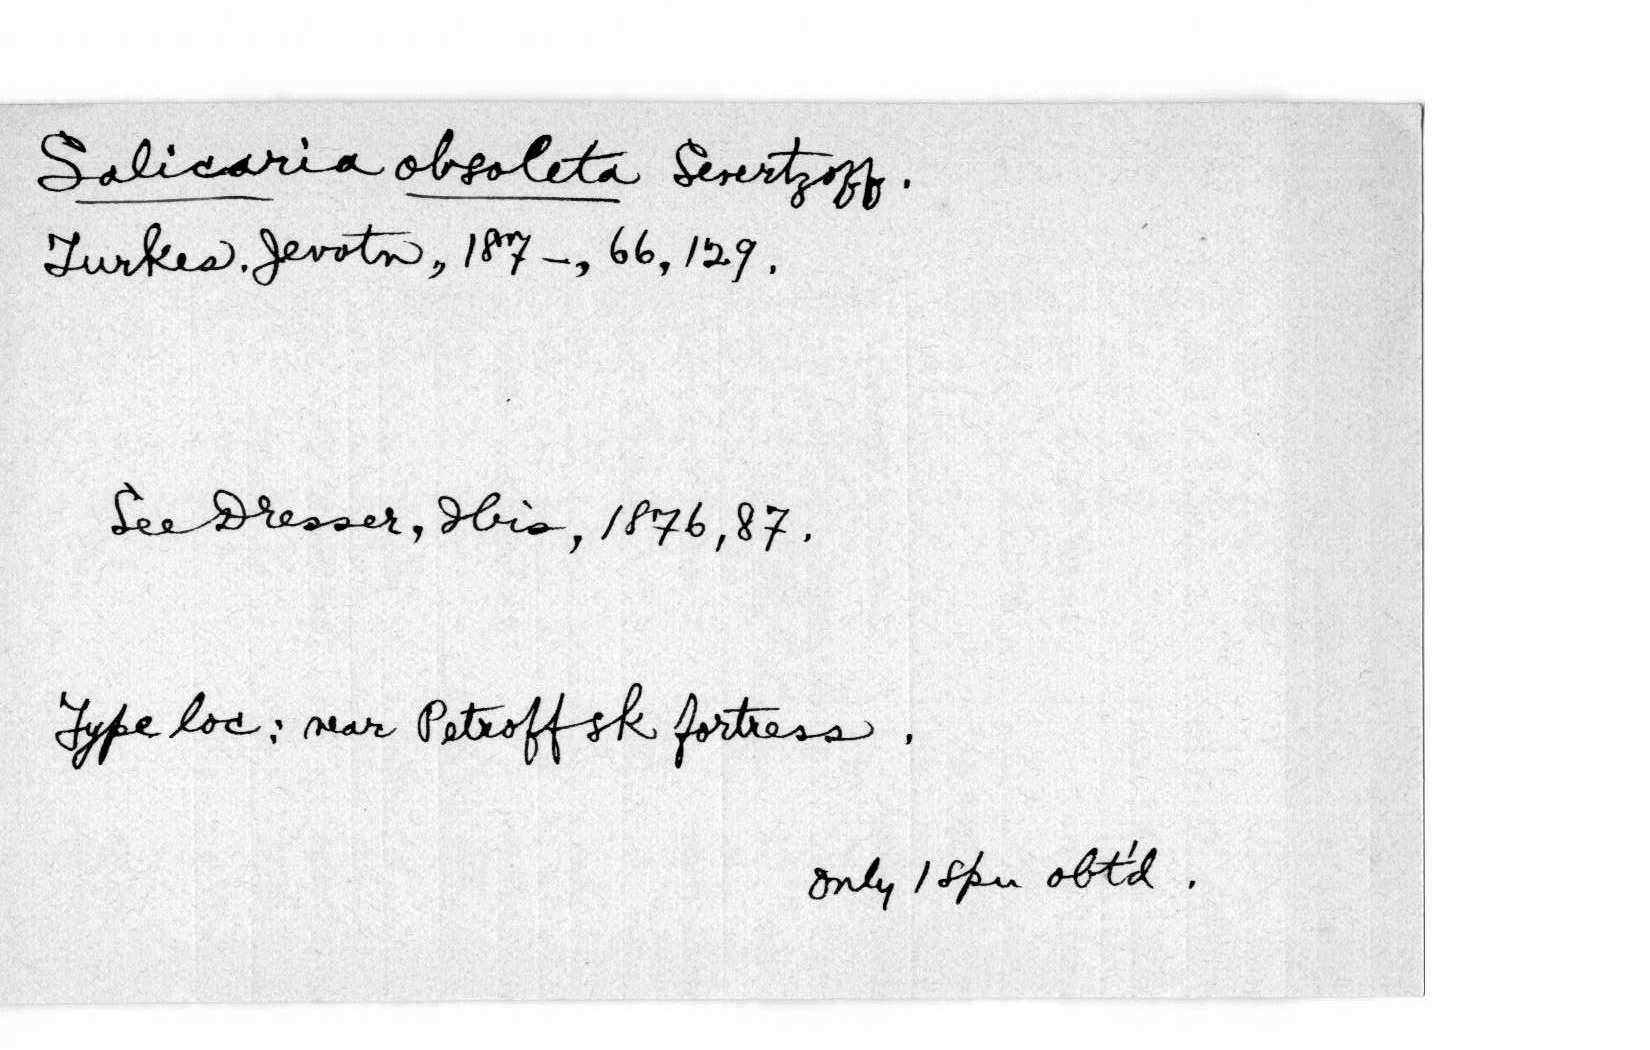 Salicaria obsoleta Severtzoff.
Turkes. Jevotn., 187-, 66, 129.
See Dresser, Ibis, 1876, 87.
Type loc: near Petroffsk fortress.
only 1 spn obt'd.